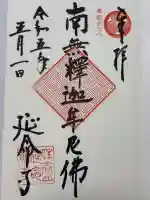 奉拝
南無釋迦牟尼佛
令和五年
五月一日
延命寺